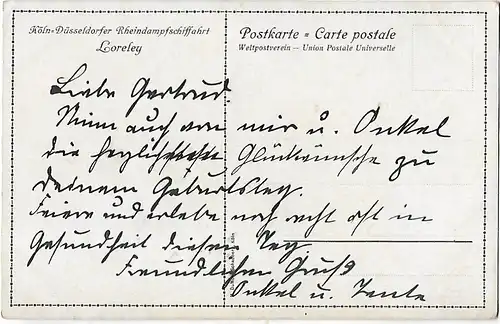 Köln=Düsseldorfer Rheindampfschiffahrt
Loreley
Postkarte = Carte postale
Weltpostverein — Union Postale Universelle
Liebe Gertrud.
Nimm auch von mir u. Onkel
die herzlichsten Glückwünsche zu
deinem Geburtstag.
Feiere und erlebe noch recht oft in
Gesundheit diesen Tag.
Freundlichen Gruß
Onkel u. Tante